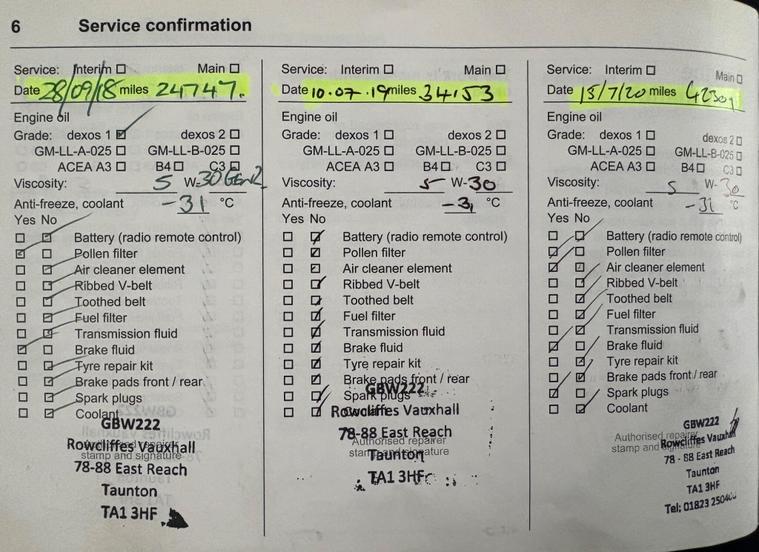 6 Service confirmation
Service: Interim Main
Date 28/09/18 miles 24747.
Engine oil
Grade: dexos 1 dexos 2
GM-LL-A-025 GM-LL-B-025
ACEA A3 B4 C3
Viscosity: 5 W-30 Gen2
Anti-freeze, coolant -31 °C
Yes No
Battery (radio remote control)
Pollen filter
Air cleaner element
Ribbed V-belt
Toothed belt
Fuel filter
Transmission fluid
Brake fluid
Tyre repair kit
Brake pads front / rear
Spark plugs
Coolant
GBW222
Rowcliffes Vauxhall
stamp and signature
78-88 East Reach
Taunton
TA1 3HF
Service: Interim Main
Date 10.07.19 miles 34153
Engine oil
Grade: dexos 1 dexos 2
GM-LL-A-025 GM-LL-B-025
ACEA A3 B4 C3
Viscosity: 5 W-30
Anti-freeze, coolant -31 °C
Yes No
Battery (radio remote control)
Pollen filter
Air cleaner element
Ribbed V-belt
Toothed belt
Fuel filter
Transmission fluid
Brake fluid
Tyre repair kit
Brake pads front / rear
GBW222
Spark plugs
Rowcliffes Vauxhall
78-88 East Reach
Authorised repairer
stamp and signature
Taunton
TA1 3HF
Service: Interim Main
Date 15/7/20 miles
Engine oil
Grade: dexos 1 dexos 2
GM-LL-A-025 GM-LL-B-025
ACEA A3 B4 C3
Viscosity: 5 W-30
Anti-freeze, coolant -31 °C
Yes No
Battery (radio remote control)
Pollen filter
Air cleaner element
Ribbed V-belt
Toothed belt
Fuel filter
Transmission fluid
Brake fluid
Tyre repair kit
Brake pads front / rear
Spark plugs
Coolant
GBW222
Authorised repairer
Rowcliffes Vauxhall
stamp and signature
78 - 88 East Reach
Taunton
TA1 3HF
Tel: 01823